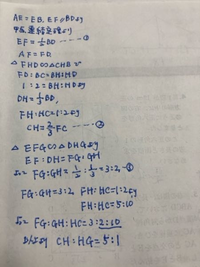 AE = EB, EF//BDより
中点連結定理より
EF = 1/2 BD ― ①
AF = FD.
△FHD∽△CHBで
FD:BC = BH:HD
1:2 = BH:HD より
DH = 1/3 BD,
FH:HC = 1:2 より
CH = 2/3 FC ― ②
△EFG∽△DHGより
EF:DH = FG:GH
よって FG:GH = 1/2:1/3 = 3:2,
FG:GH = 3:2, FH:HC = 1:2より
FH:HC = 5:10
よって FG:GH:HC = 3:2:10
以上より CH:HG = 5:1